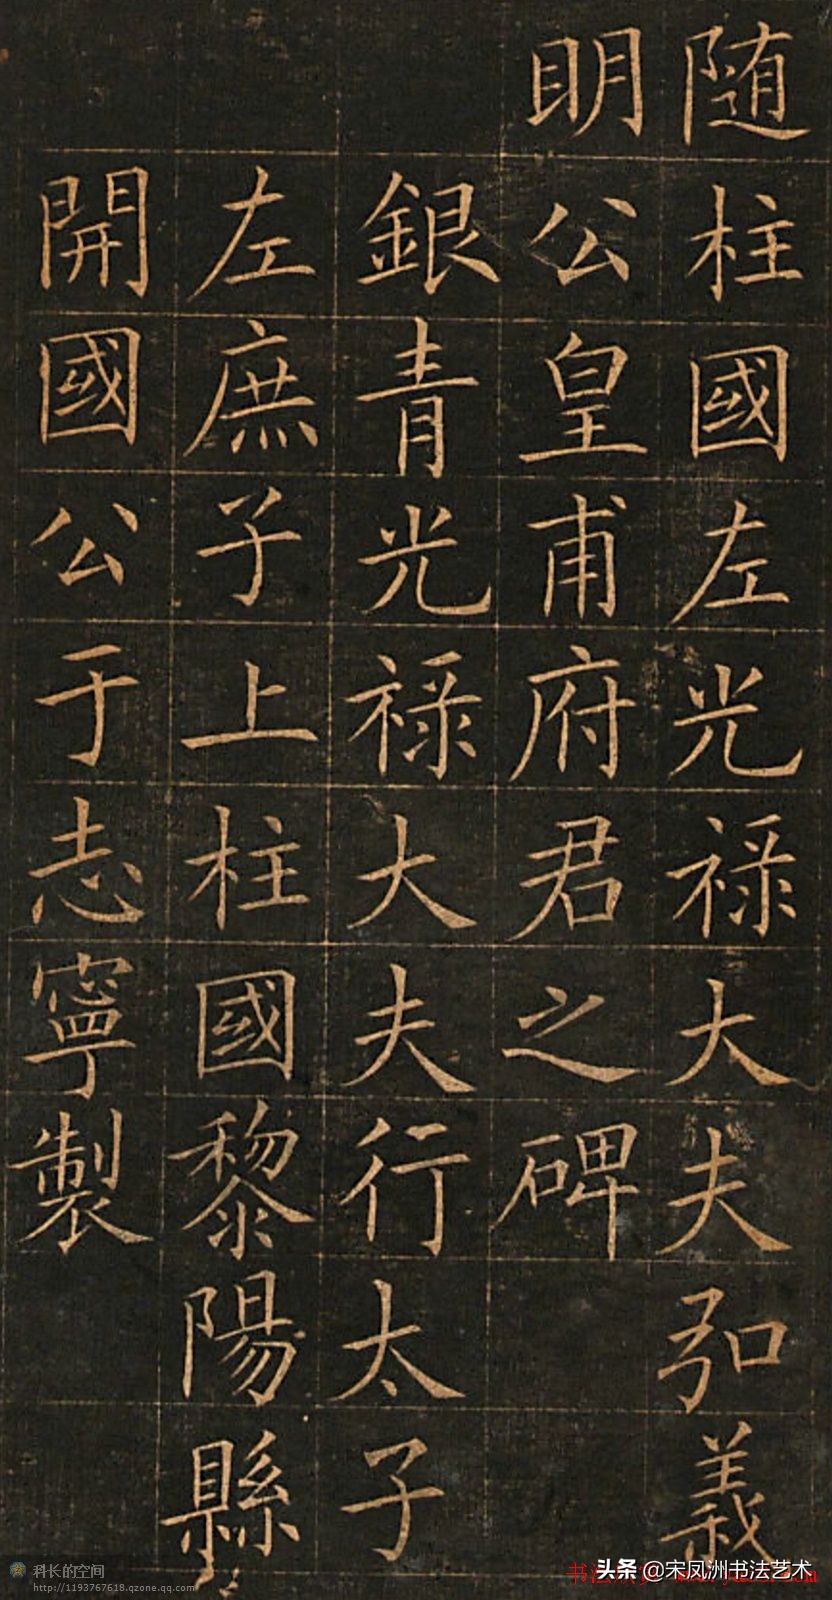 随柱國左光禄大夫弘義
明公皇甫府君之碑
銀青光禄大夫行太子
左庶子上柱國黎陽縣
開國公于志寧製
科长的空间
http://1193767618.qzone.qq.com
头条 @宋凤洲书法艺术